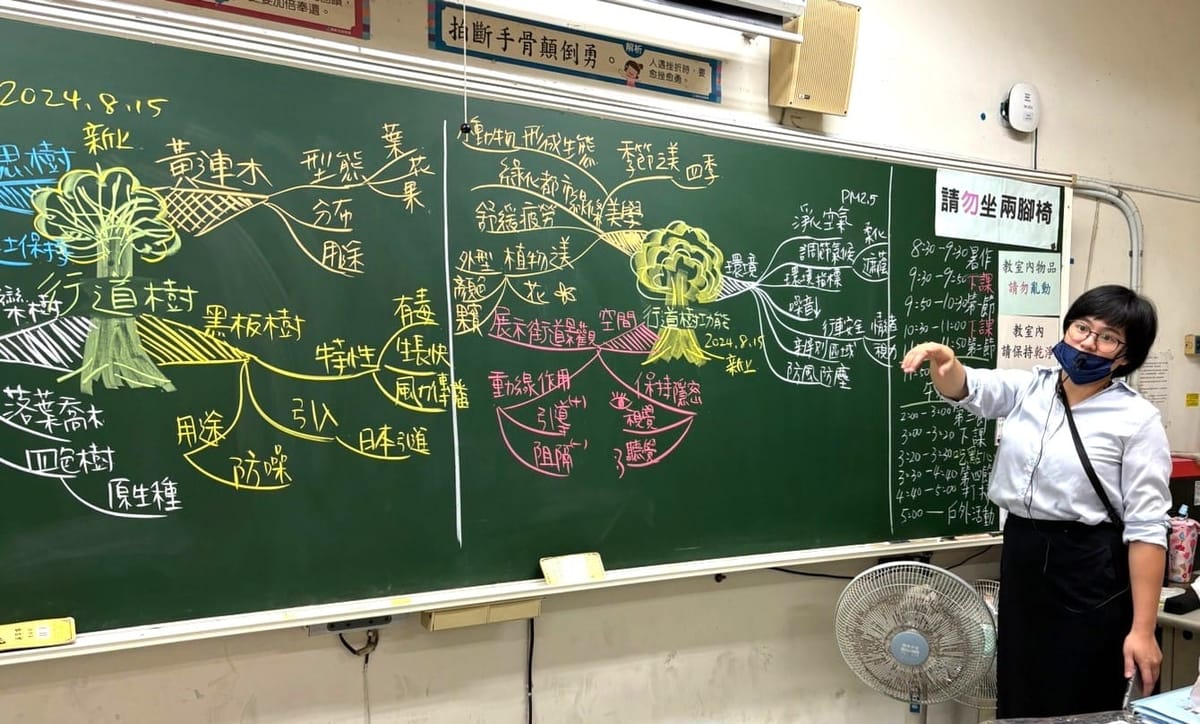 要加倍奉還。
拍斷手骨顛倒勇。
解析
人遇挫折時，要
愈挫愈勇。
2024.8.15
新北
行道樹
黃連木
型態
葉
花
果
分布
用途
黑板樹
特性
有毒
生長快
風力傳播
引入
日本引進
用途
防噪
欒樹
落葉喬木
四色樹
原生種
思樹
土保持
動物形成生態
季節之美
四季
綠化都市線條
美學
舒緩疲勞
外型
植物之美
顏色
花
果
行道樹功能
2024.8.15
新北
空間
展示街道景觀
動線作用
引導(+)
阻隔(-)
保持隱密
視覺
聽覺
環境
PM2.5
淨化空氣
調節氣候
柔化
遮蔭
環境指標
噪音
行車安全
情緒
視力
區域
防風防塵
請勿坐兩腳椅
教室內物品
請勿亂動
教室內
請保持乾淨
8:30-9:30 暑作
9:30-9:50 下課
9:50-10:30 第一節
10:30-11:00 下課
2:00-3:00 第三節
3:00-3:20 下課
3:20-3:30 吃點心
3:30-4:40 第四節
4:40-5:00 打掃
5:00- 戶外活動